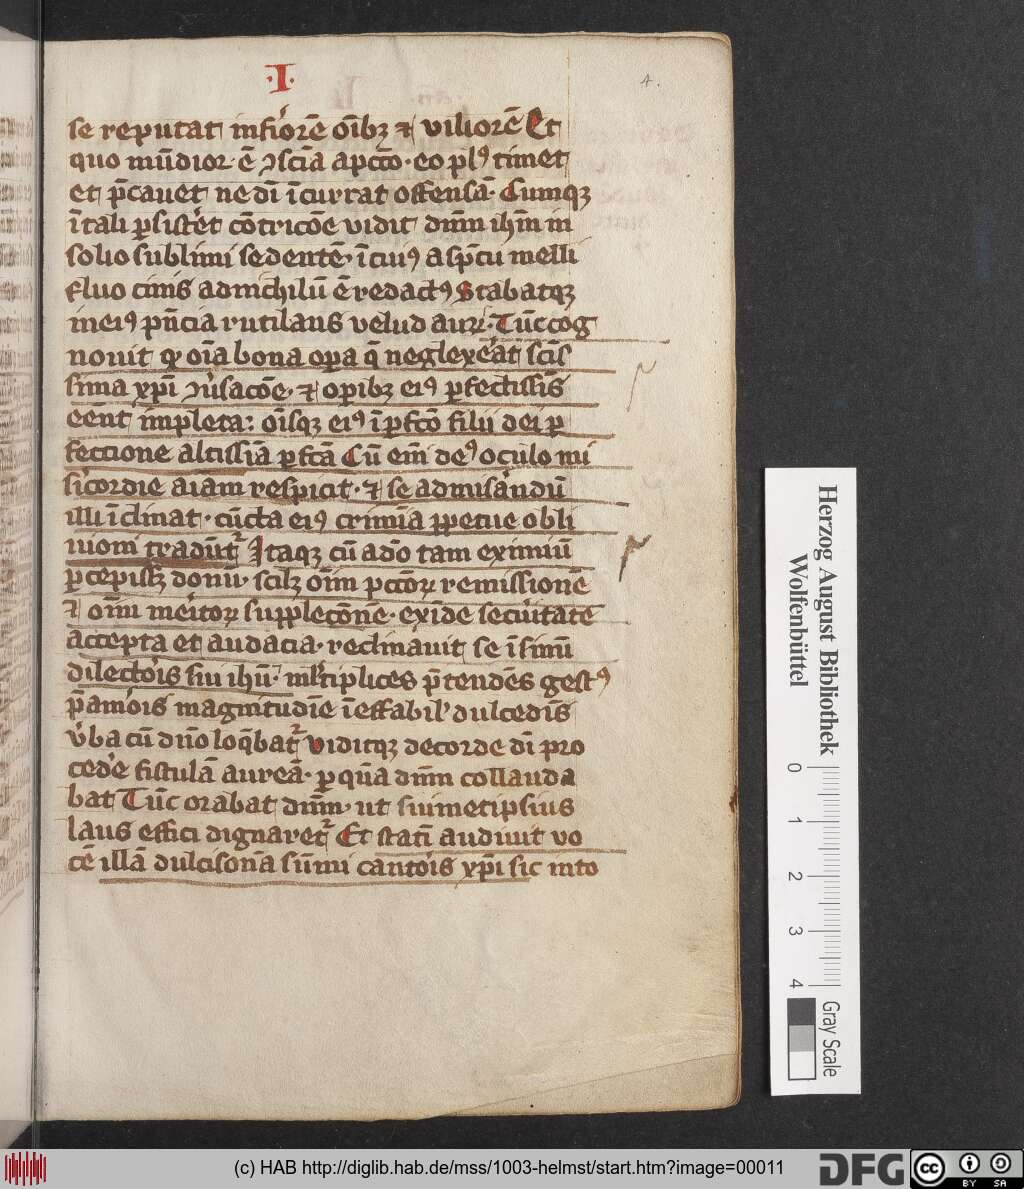 ·I·
4.
se reputat infiorē oībꝫ ⁊ viliorē Et
quo mūdior ē ꝯscīa a pctō· eo pl᷒ timet
et p̄cauet ne dī īcurrat offensā· Cumqꝫ
ītali ꝑsistēt cōtricōe vidit dn̄m ihm̄ in
solio sublimi sedentē· ī cui᷒ aspc̄tu melli
fluo cinis ad nichilū ē redact᷒ Stabatqꝫ
in ei᷒ pn̄cia rutilans velud aurꝫ· Tūc cog
nouit qꝫ oīa bona oꝑa q̄ neglexēat scīs
sima xp̄i ꝯu̓sacōe· ⁊ oꝑibꝫ ei᷒ ꝑfectissīs
eēnt impleta: oīsqꝫ ei᷒ īꝑfc̄o filii dei ꝑ
fectione altissīā ꝑfc̄ā Cū em̄ de᷒ oculo mi
sicordie aīam respicit· ⁊ se ad misandū
illi īclinat· cūcta ei᷒ crimīa ꝑpetue obli
uioni tradūt᷑ Itaqꝫ cū a dn̄o tam eximiū
ꝑcepissꝫ donū· scilꝫ oīm pctōꝝ remissionē
⁊ oīm meritoꝝ suppletōnē· exīde secu̓itate
accepta et audacia· reclinauit se ī sinū
dilectoīs sui ihū· mltiplices p̄tendēs gest᷒
p̄ amoīs magnitudīe īeffabil dulcedīs
v̓ba cū dn̄o loq̄bat᷑ Viditqꝫ de corde dī pro
cede̓ fistulā aureā· ꝑ quā dn̄m collauda
bat Tūc orabat dn̄m· ut suimetipsius
laus effici dignaret᷑ Et statī audiuit vo
cē illā dulcisonā sūmi cantoīs xp̄i sic into
Herzog August Bibliothek
Wolfenbüttel
0 1 2 3 4
Gray Scale
(c) HAB http://diglib.hab.de/mss/1003-helmst/start.htm?image=00011
DFG
cc BY SA